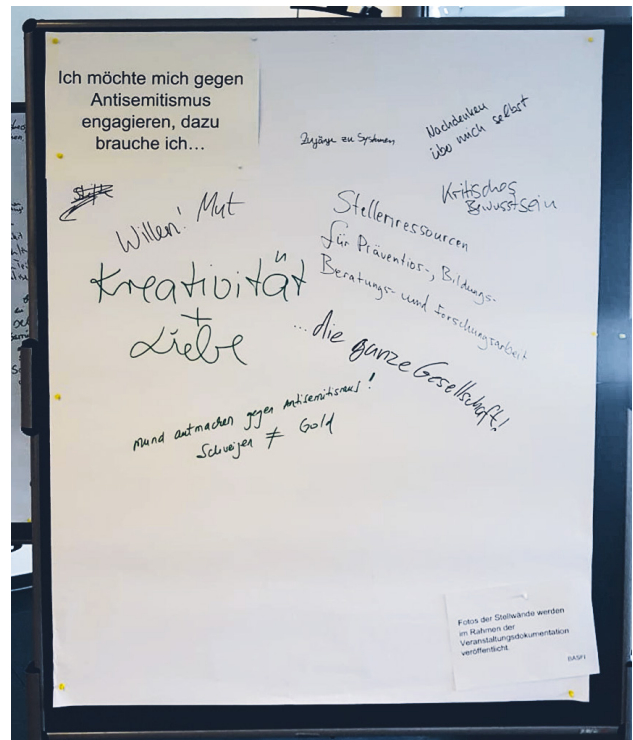 Ich möchte mich gegen
Antisemitismus
engagieren, dazu
brauche ich...
Zugänge zu Systemen
Nachdenken
über mich selbst
Kritisches
Bewusstsein
Willen! Mut
Stellenressourcen
für Präventions-, Bildungs-
Beratungs- und Forschungsarbeit
Kreativität
+
Liebe
... die ganze Gesellschaft!
Mund aufmachen gegen Antisemitismus!
Schweigen ≠ Gold
Fotos der Stellwände werden
im Rahmen der
Veranstaltungsdokumentation
veröffentlicht.
BASFI